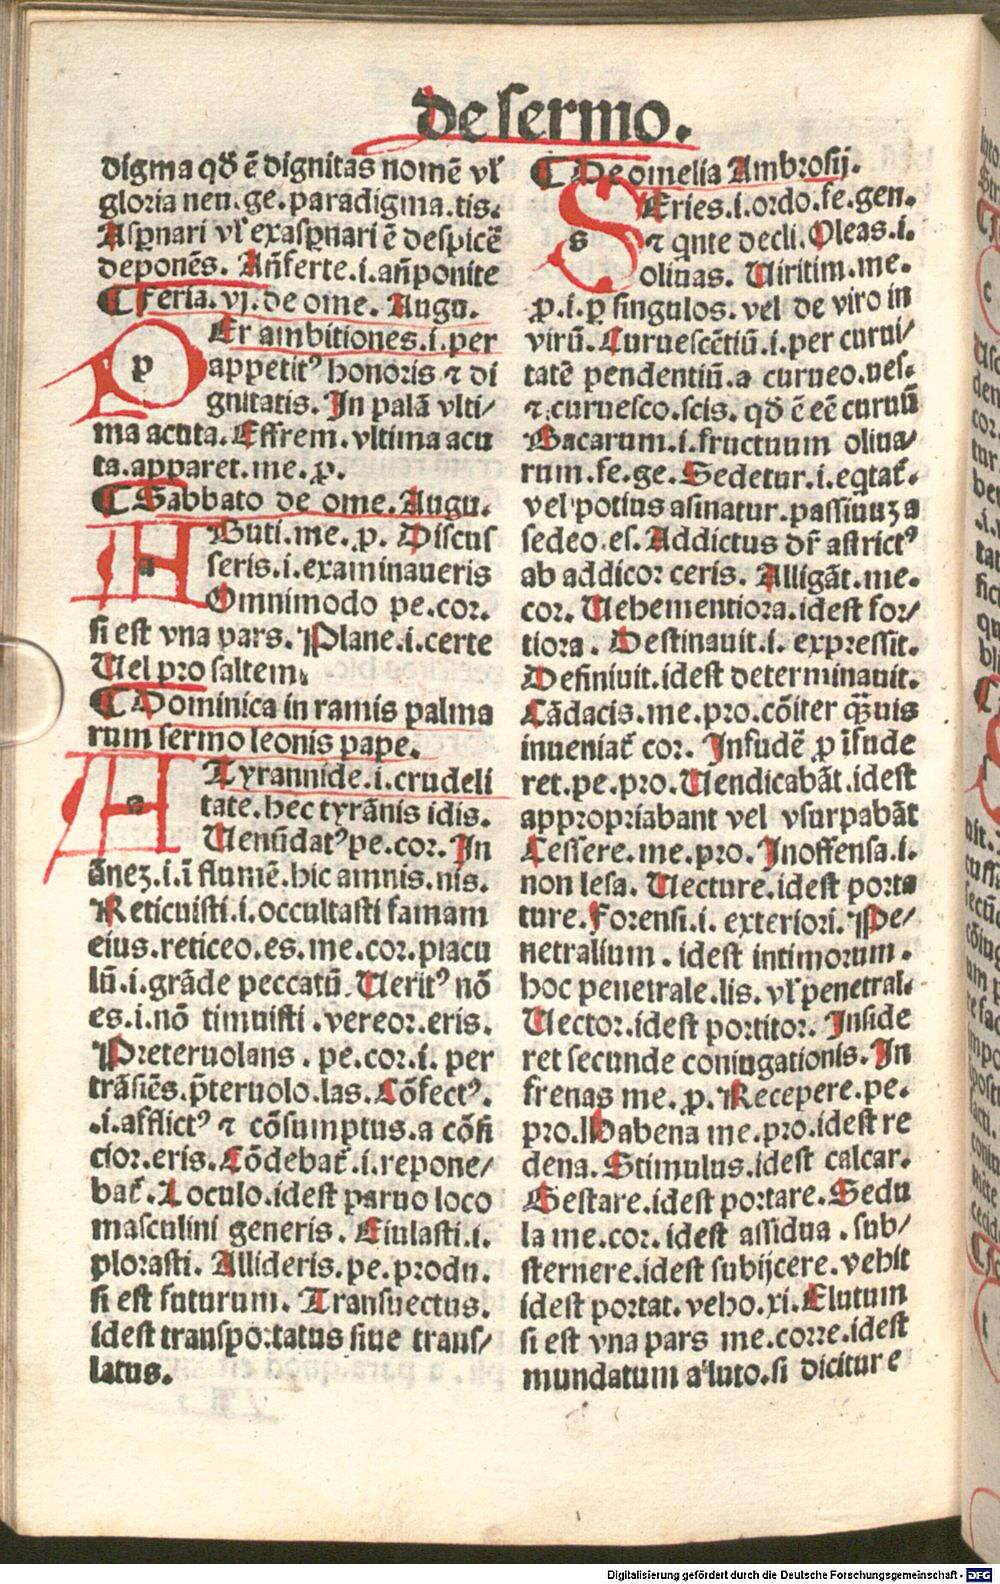 de sermo.
digma qđ ē dignitas nomē vƚ
gloria neu.ge.paradigma.tis.
Aspnari vƚ exaspnari ē despicē
deponēs. Añferte.i.añponite
¶ Feria.vj.de ome. Augu.
PEr ambitiones.i.per
appetitꝰ honoris ⁊ di
gnitatis. In palā vlti/
ma acuta. Effrem.vltima acu
ta.apparet.me.ꝓ.
¶ Sabbato de ome.Augu.
AButi.me.p. Discus
seris.i.examinaueris
Omnimodo pe.cor.
si est vna pars. Plane.i.certe
Uel pro saltem.
¶ Dominica in ramis palma
rum sermo leonis pape.
A Tyrannide.i.crudeli
tate.hec tyrānis idis.
Uenūdatꝰ pe.cor. In
āneʒ.i.ī flumē.hic amnis.nis.
Reticuisti.i.occultasti famam
eius.reticeo.es.me.cor.piacu
lū.i.grāde peccatū. Ueritꝰ nō
es.i.nō timuisti.vereor.eris.
Preteruolans. pe.cor.i. per
trāsiēs.p̄teruolo.las.Cōfectꝰ.
.i.afflictꝰ ⁊ cōsumptus.a cōfi
cior.eris.Cōdebat̄.i.repone/
bat̄.Loculo.idest paruo loco
masculini generis. Eiulasti.i.
plorasti. Allideris.pe.produ.
si est futurum. Transuectus.
idest transportatus siue trans/
latus.
¶ De omelia Ambrosij.
SEries.i.ordo.fe.gen.
⁊ qnte decli. Oleas.i.
oliuas. Uiritim.me.
p.i.ꝑ singulos.vel de viro in
virū. Curuescētiū.i.per curui/
tatē pendentiū.a curueo.ues.
⁊.curuesco.scis. qđ ē eē curuū
Bacarum.i.fructuum oliua/
rum.fe.ge. Sedetur.i.eqtat̄.
vel potius asinatur.passiuuʒ a
sedeo.es. Addictus dr̄ astrictꝰ
ab addicor ceris. Alligāt.me.
cor. Uehementiora.idest for/
tiora. Destinauit.i. expressit.
Definiuit.idest determinauit.
Cādacis.me.pro.cōiter qᷓuis
inueniat̄ cor. Infudē ꝓ īfude
ret.pe.pro.Uendicabāt.idest
appropriabant vel vsurpabāt
Cessere.me.pro. Inoffensa.i.
non lesa. Uecture.idest porta
ture. Forensi.i. exteriori. Pe/
netralium. idest intimorum.
hoc penetrale.lis. vƚ penetral.
Uector.idest portitor. Inside
ret secunde coniugationis. In
frenas me. ꝓ. Recepere.pe.
pro. Habena me.pro.idest re
dena. Stimulus.idest calcar.
Gestare.idest portare. Sedu
la me.cor. idest assidua. sub/
sternere.idest subijcere.vehit
idest portat. veho.xi. Elutum
si est vna pars me.corre.idest
mundatum a luto.si dicitur e
Digitalisierung gefördert durch die Deutsche Forschungsgemeinschaft - DFG